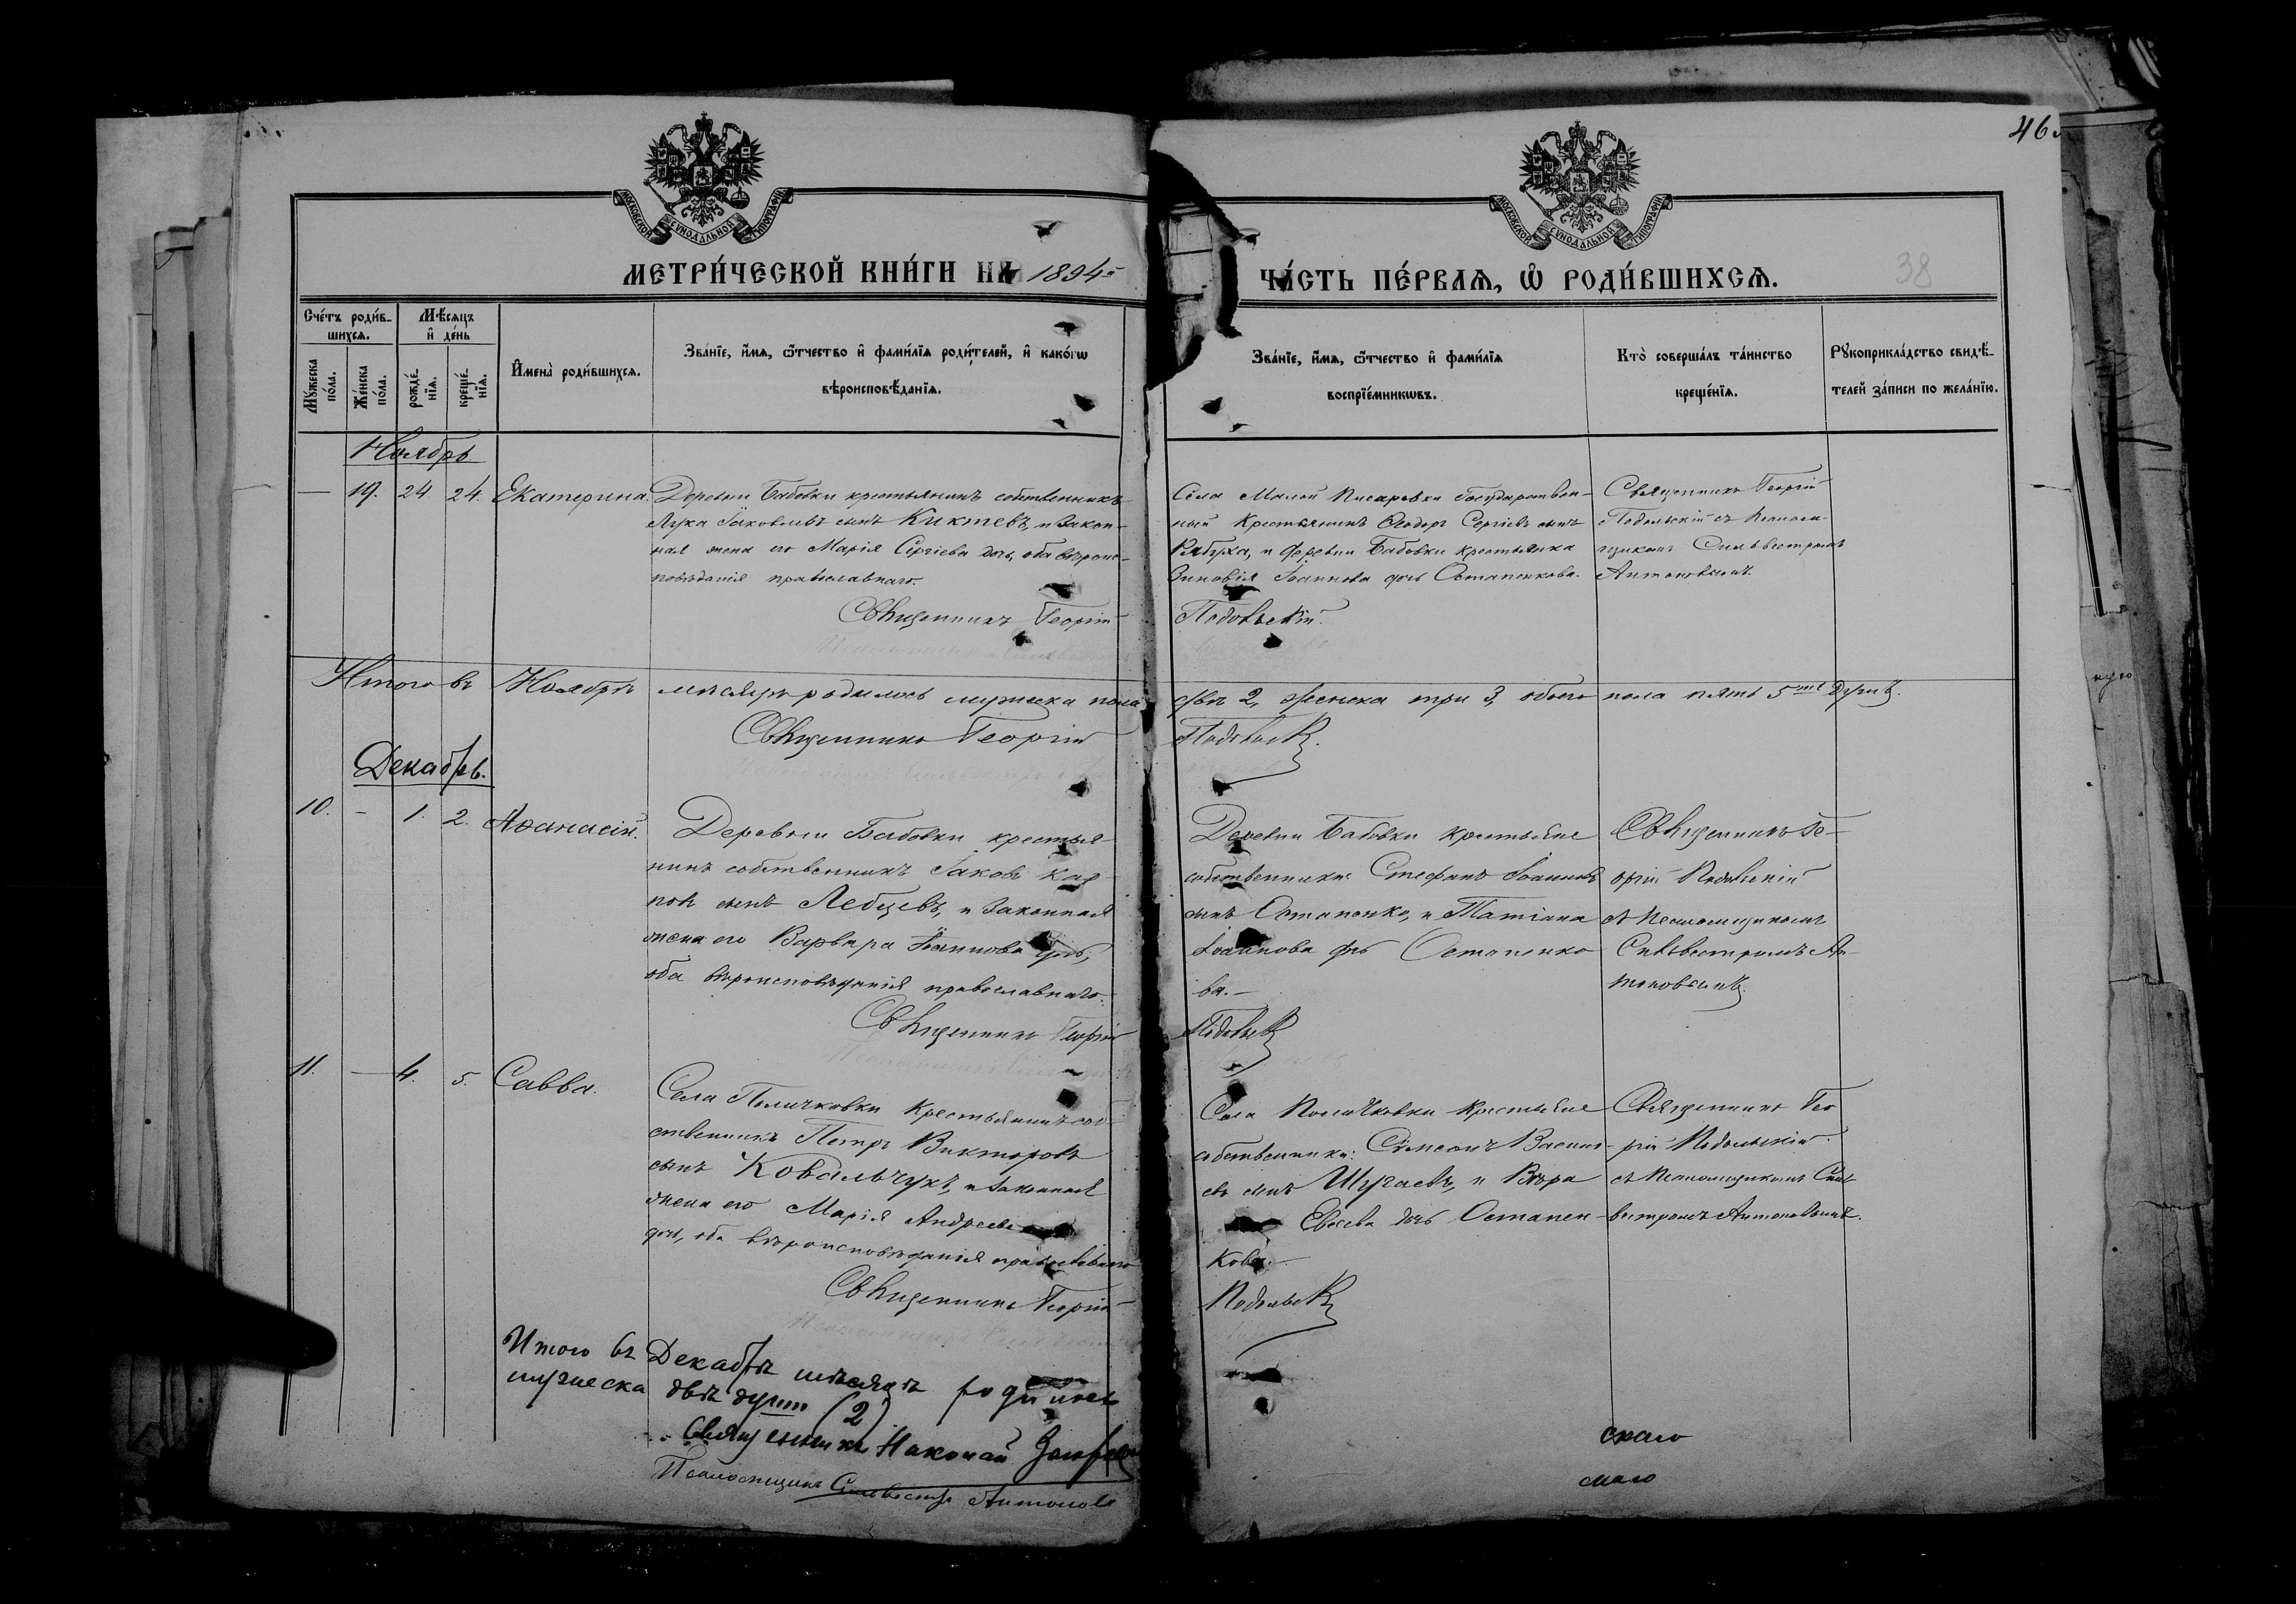 46
МОСКОВСКОЙ СУНОДАЛЬНОЙ ТИПОГРАФИИ
МОСКОВСКОЙ СУНОДАЛЬНОЙ ТИПОГРАФИИ
МЕТРИ́ЧЕСКОЙ КНИ́ГИ НА 1894
ЧА́СТЬ ПЕ́РВАѦ, Ѡ҆ РОДИ́ВШИХСѦ.
38
Сче́тъ роди́в-
шихсѧ.
Мꙋ́жеска по́ла.
Же́нска по́ла.
Мѣ́сѧцъ
и҆ де́нь
рожде́нїѧ.
креще́нїѧ.
И҆мена̀ роди́вшихсѧ.
Зва́нїе, и҆́мѧ, ѻ҆́тчество и҆ фами́лїѧ роди́телей, и҆ како́гѡ
вѣроисповѣ́данїѧ.
Зва́нїе, и҆́мѧ, ѻ҆́тчество и҆ фами́лїѧ
воспрїе́мникѡвъ.
Кто̀ соверша́лъ та́инство
креще́нїѧ.
Рꙋкоприкла́дство свидѣ́-
телей за́писи по жела́нїю.
Ноябрь
— 19. 24 24. Екатерина.
Деревни Бабовки крестьянинъ собственникъ
Лука Іаковлевъ сынъ Киктевъ, и закон-
ная жена его Марія Сергіева дочь, оба вѣроис-
повѣданія православнаго.
Священникъ Георгій
Села Малой Писаревки государствен-
ный крестьянинъ Ѳеодоръ Сергіевъ сынъ
Рябуха, и деревни Бабовки крестьянка
Зиновія Іоаннова дочь Остапенкова.
Подольскій.
Священникъ Георгій
Подольскій съ Псалом-
щикомъ Сильвестромъ
Антоновымъ.
Итого въ Ноябрѣ мѣсяцѣ родилось мужска пола
двѣ 2, женска три 3, обоего пола пять 5 душъ.
Священникъ Георгій
Подольск
Декабрь.
10. — 1. 2. Аѳанасій.
Деревни Бабовки крестья-
нинъ собственникъ Іаковъ Кар-
повъ сынъ Лебедевъ, и законная
жена его Варвара Іоаннова дочь,
оба вѣроисповѣданія православнаго.
Священникъ Георгій
Деревни Бабовки крестьяне
собственники: Стефанъ Іоанновъ
сынъ Остапенко, и Татіана
Іоаннова дочь Остапенко
ва.—
Подольск
Священникъ Ге-
оргій Подольскій
съ Псаломщикомъ
Сильвестромъ Ан-
тоновымъ.
11. — 4. 5. Савва.
Села Поличковки крестьянинъ соб-
ственникъ Петръ Викторовъ
сынъ Ковальчукъ, и законная
жена его Марія Андреева
дочь, оба вѣроисповѣданія православнаго
Священникъ Георгій
Села Поличковки крестьяне
собственники: Симеонъ Василь-
евъ сынъ Шугаевъ, и Вѣра
Евсева дочь Остапен-
кова.—
Подольск
Священникъ Гео
ргій Подольскій
съ Псаломщикомъ Силь
вестромъ Антоновымъ.
Итого въ Декабрѣ мѣсяцѣ родилось
мужеска двѣ души (2)
Священникъ Николай
Псаломщикъ Сильвестръ Антоновъ
скаго